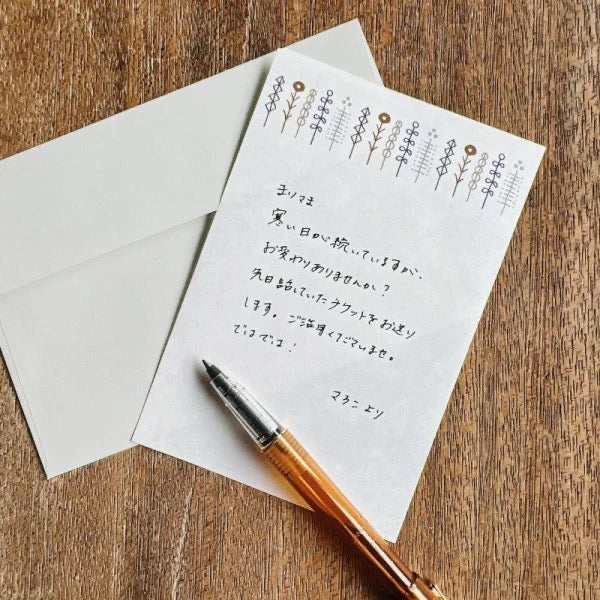 まりさま
寒い日が続いていますが、
お変わりありませんか?
先日話していたチケットをお送り
します。ご活用くださいませ。
ではでは!
まろこより